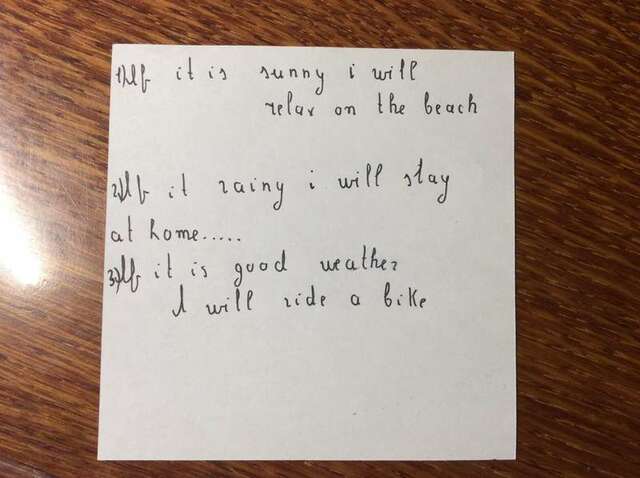 1) If it is sunny i will
relax on the beach
2) If it rainy i will stay
at home.....
3) If it is good weather
I will ride a bike